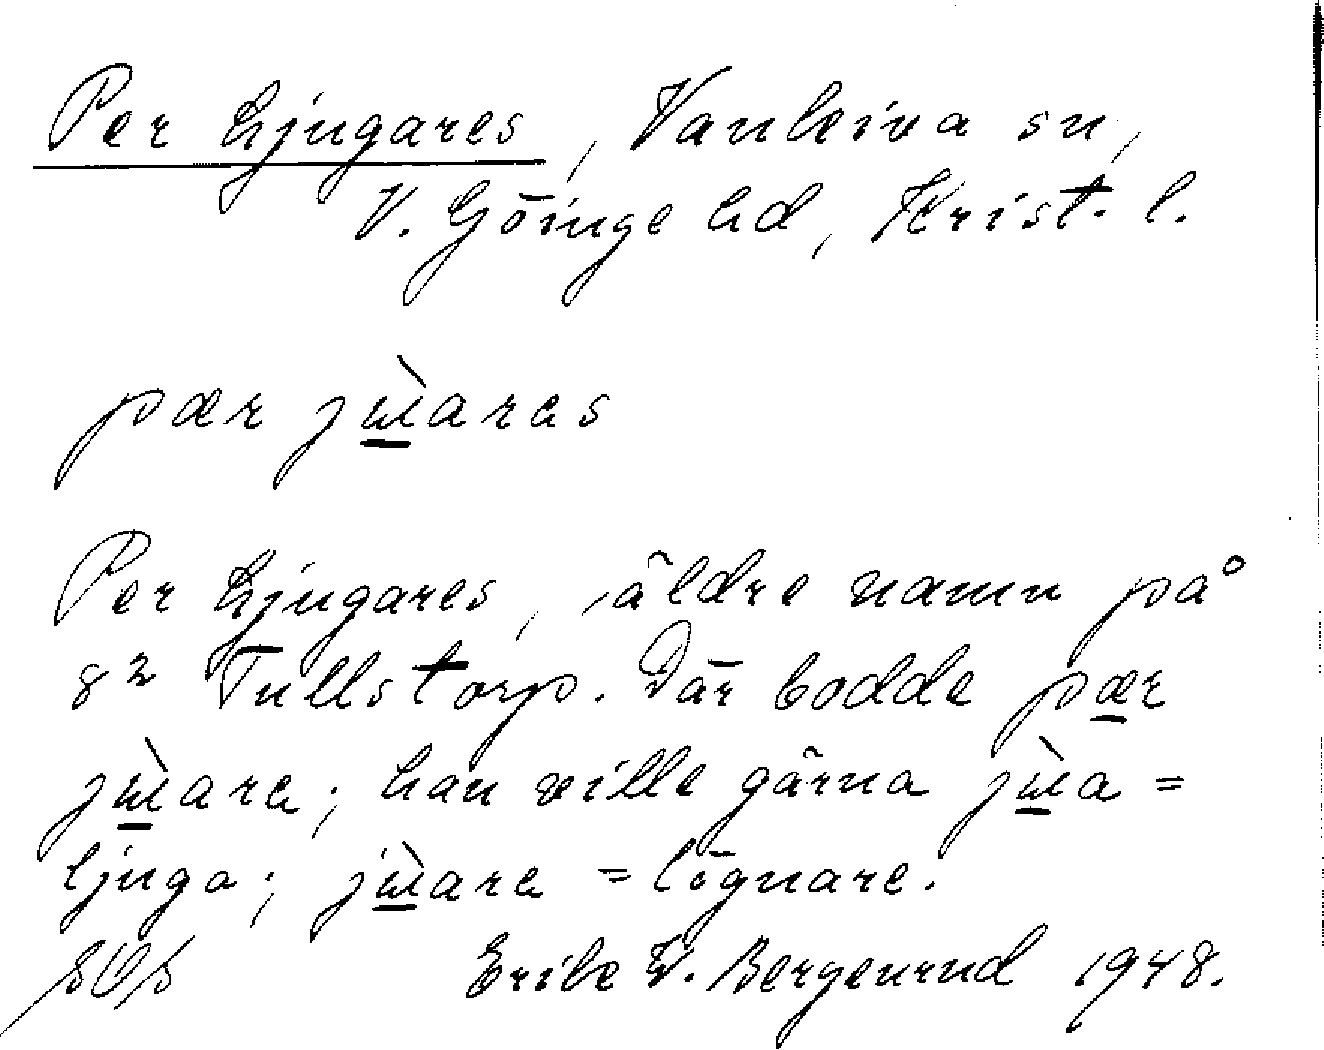 Per Ljugares, Vankiva sn,
V. Göinge hd, Krist. l.
pær jɯ̀ares
Per Ljugares, äldre namn på
8² Tullstorp. Där bodde pær
jɯ̀are; han ville gärna jɯ̀a =
ljuga; jɯ̀are = lögnare.
Erik W. Bergenrud 1948.